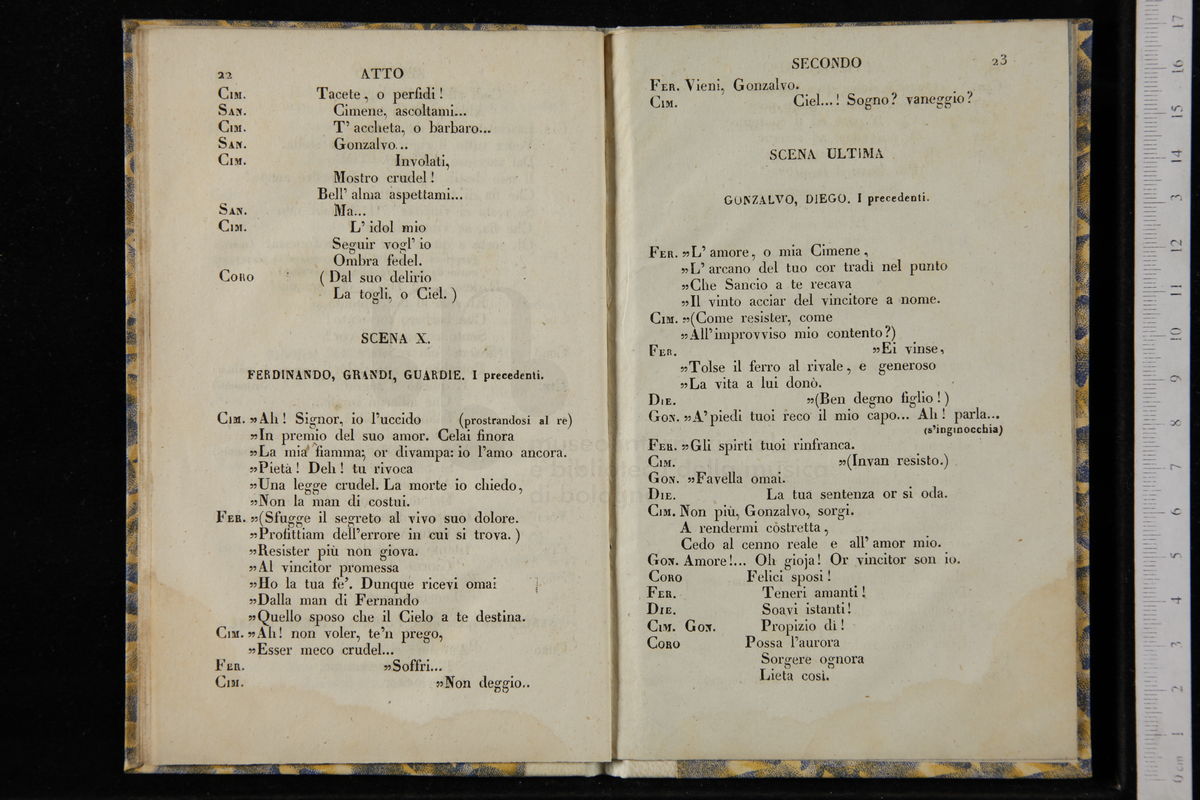 22 ATTO
CIM. Tacete, o perfidi!
SAN. Cimene, ascoltami...
CIM. T' accheta, o barbaro...
SAN. Gonzalvo...
CIM. Involati,
Mostro crudel!
Bell' alma aspettami...
SAN. Ma...
CIM. L' idol mio
Seguir vogl' io
Ombra fedel.
CORO (Dal suo delirio
La togli, o Ciel.)
SCENA X.
FERDINANDO, GRANDI, GUARDIE. I precedenti.
CIM. »Ah! Signor, io l'uccido (prostrandosi al re)
»In premio del suo amor. Celai finora
»La mia fiamma; or divampa: io l'amo ancora.
»Pietà! Deh! tu rivoca
»Una legge crudel. La morte io chiedo,
»Non la man di costui.
FER. »(Sfugge il segreto al vivo suo dolore.
»Profittiam dell'errore in cui si trova.)
»Resister più non giova.
»Al vincitor promessa
»Ho la tua fe'. Dunque ricevi omai
»Dalla man di Fernando
»Quello sposo che il Cielo a te destina.
CIM. »Ah! non voler, te'n prego,
»Esser meco crudel...
FER. »Soffri...
CIM. »Non deggio..
SECONDO 23
FER. Vieni, Gonzalvo.
CIM. Ciel...! Sogno? vaneggio?
SCENA ULTIMA
GONZALVO, DIEGO. I precedenti.
FER. »L' amore, o mia Cimene,
»L' arcano del tuo cor tradì nel punto
»Che Sancio a te recava
»Il vinto acciar del vincitore a nome.
CIM. »(Come resister, come
»All'improvviso mio contento?)
FER. »Ei vinse,
»Tolse il ferro al rivale, e generoso
»La vita a lui donò.
DIE. »(Ben degno figlio!)
GON. »A'piedi tuoi reco il mio capo... Ah! parla...
(s'inginocchia)
FER. »Gli spirti tuoi rinfranca.
CIM. »(Invan resisto.)
GON. »Favella omai.
DIE. La tua sentenza or si oda.
CIM. Non più, Gonzalvo, sorgi.
A rendermi costretta,
Cedo al cenno reale e all' amor mio.
GON. Amore!... Oh gioja! Or vincitor son io.
CORO Felici sposi!
FER. Teneri amanti!
DIE. Soavi istanti!
CIM. GON. Propizio dì!
CORO Possa l'aurora
Sorgere ognora
Lieta così.